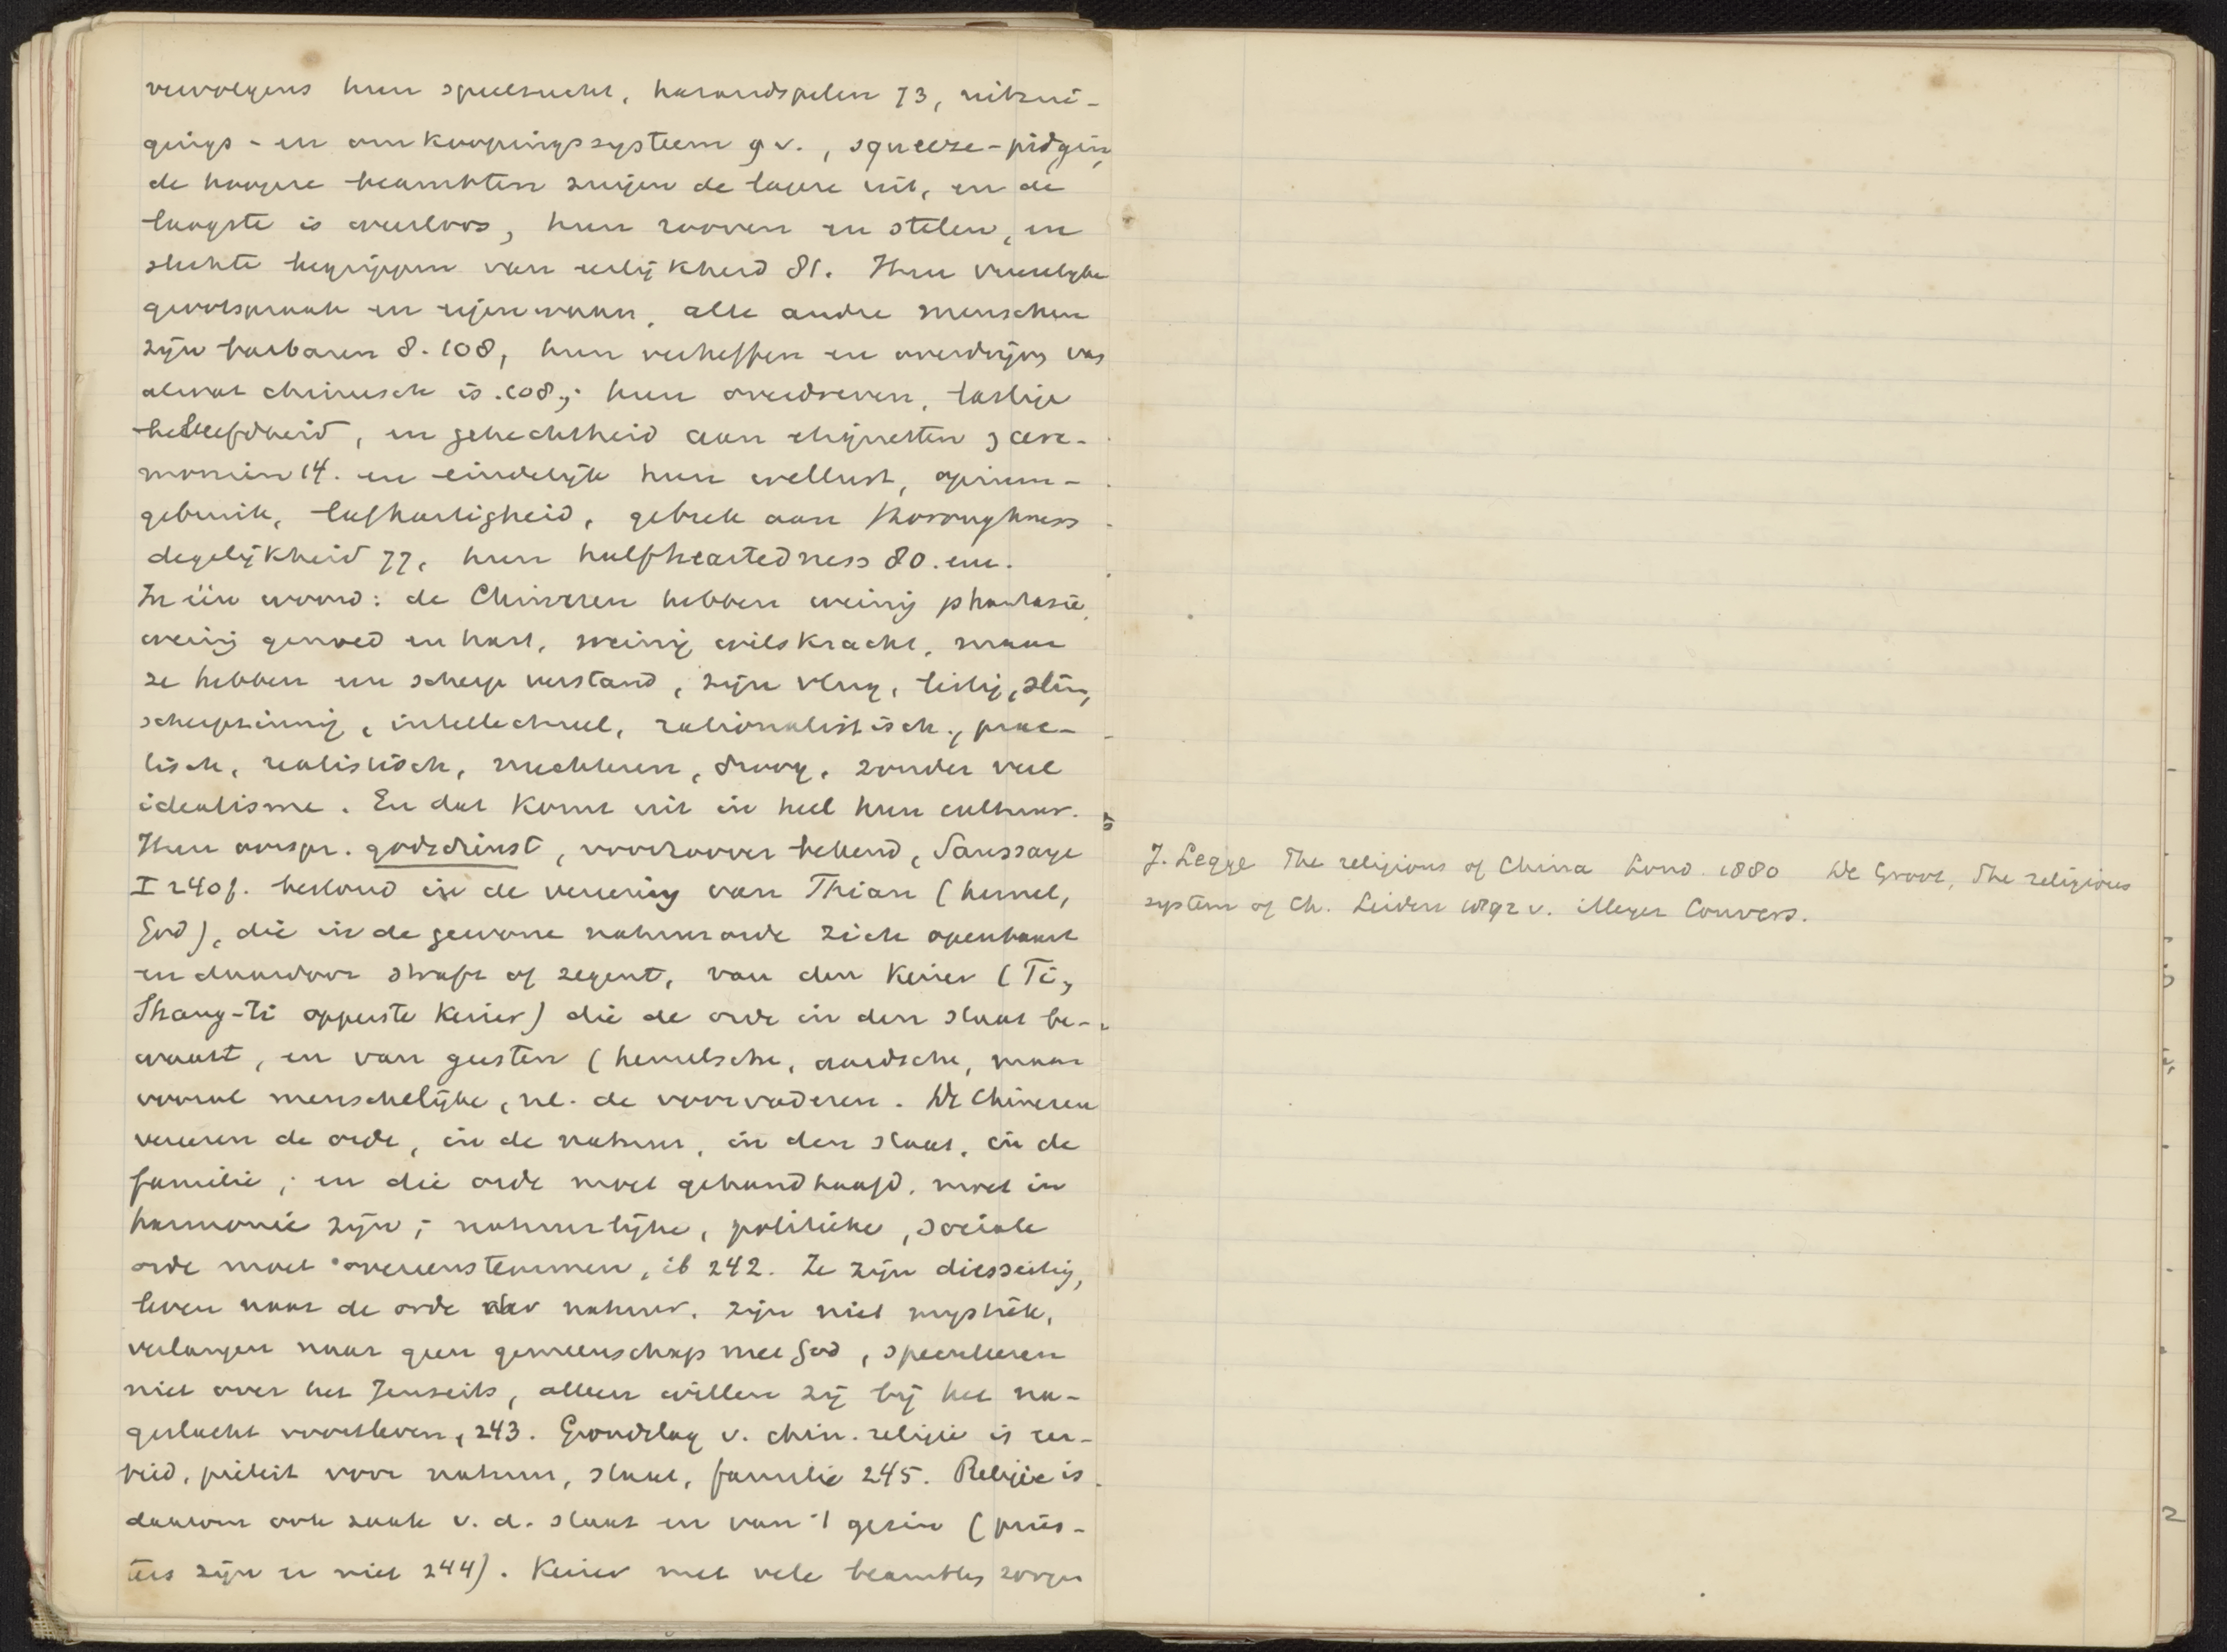 vervolgens hun speelzucht, hazardspelen 73, uitzui-
gings- en omkoopingssysteem q.v., squeeze-pidgin,
de hoogere beambten zuigen de lagere uit, en de
laagste is eerloos, hun rooven en stelen, en
slechte begrippen van eerlijkheid 81. Hun vreeselijke
grootspraak en eigenwaan, alle andre menschen
zijn barbaren 8. 108, hun verheffen en overdrijven van
alwat chineesch is. 108; hun overdreven, lastige
beleefdheid, en gehechtheid aan etiquetten & cere-
monien 14. en eindelijk hun wellust, opium-
gebruik, lafhartigheid, gebrek aan thoroughness
degelijkheid 77, hun halfheartedness 80. enz.
In één woord: de Chineezen hebben weinig phantasie,
weinig gemoed en hart, weinig wilskracht, maar
ze hebben een scherp verstand, zijn vlug, listig, slim,
scherpzinnig, intellectueel, rationalistisch, prac-
tisch, realistisch, nuchteren, droog, zonder veel
idealisme. En dat komt uit in heel hun cultuur.
Hun oorspr. godsdienst, voorzoover bekend, Saussaye
I 240f. bestond in de vereering van Thian (hemel,
God), die in de gewone natuurorde zich openbaart
en daardoor straft of zegent, van den Keizer (Ti,
Shang-ti opperste Keizer) die de orde in den staat be-
waart, en van geesten (hemelsche, aardsche, maar
vooral menschelijke, nl. de voorvaderen. De Chineezen
vereeren de orde, in de natuur, in den staat, in de
familie; en die orde moet gehandhaafd, moet in
harmonie zijn; natuurlijke, politieke, sociale
orde moet overeenstemmen, ib 242. Ze zijn diesseitig,
leven naar de orde der natuur, zijn niet mystiek,
verlangen naar geen gemeenschap met God, speculeeren
niet over het Jenseits, alleen willen zij bij het na-
geslacht voortleven, 243. Grondslag v. chin. religie is eer-
bied, piëteit voor natuur, staat, familie 245. Religie is
daarom ook zaak v. d. staat en van 't gezin (pries-
ters zijn er niet 244). Keizer met vele beambten zorgen
J. Legge The religions of China Lond. 1880 De Groot, The religious
system of Ch. Leiden 1892 v. Meyer Convers.